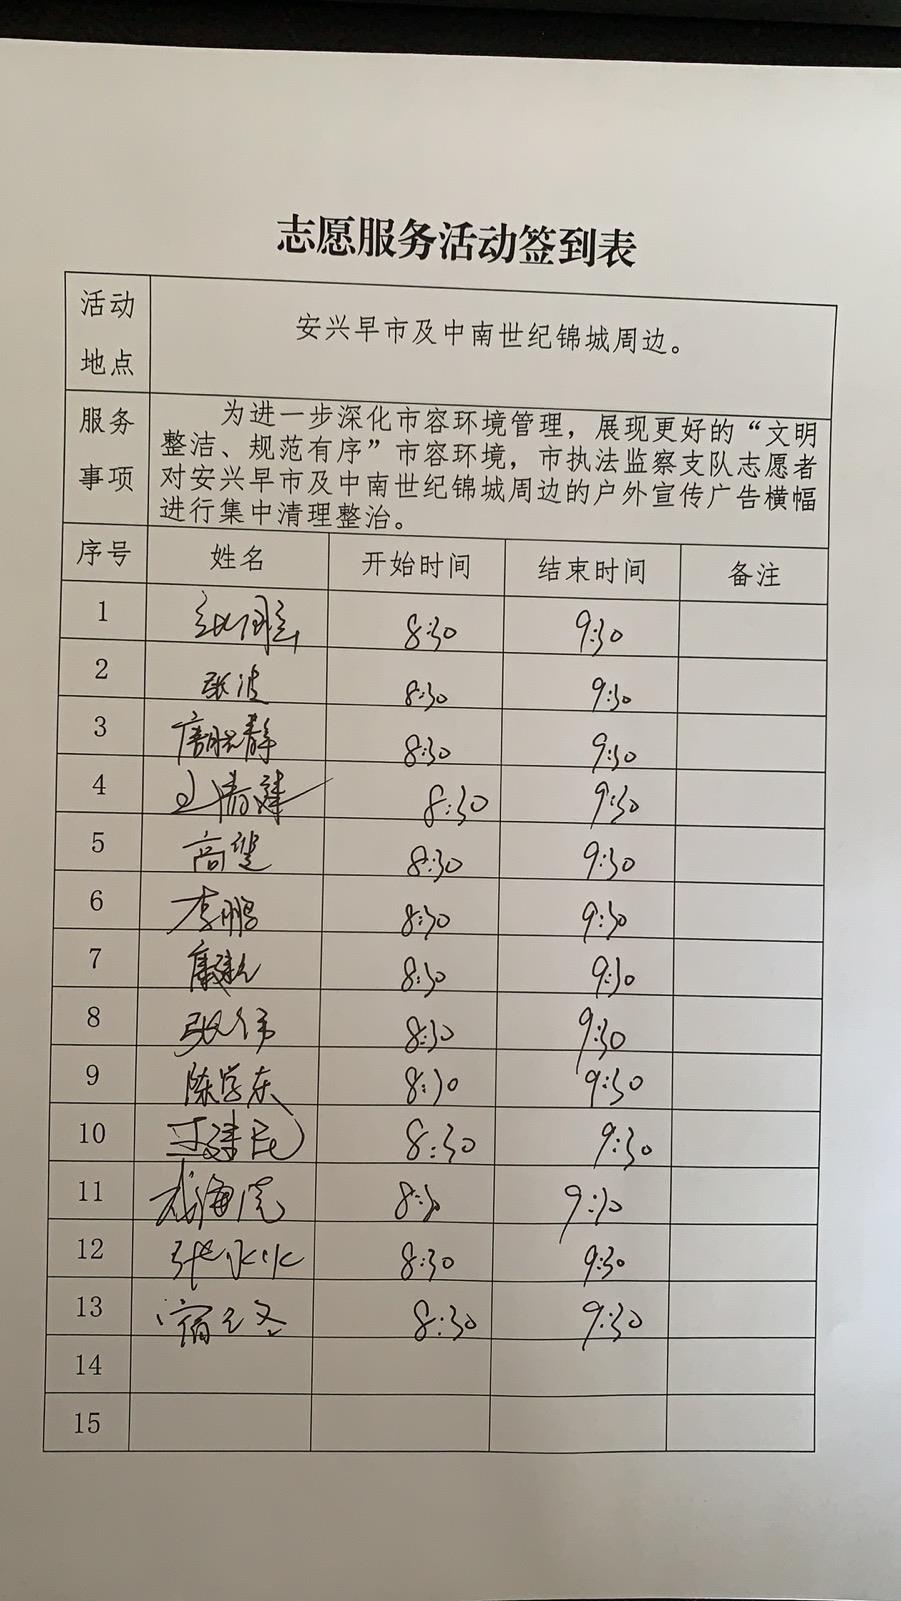 志愿服务活动签到表
活动地点 安兴早市及中南世纪锦城周边。
服务事项 为进一步深化市容环境管理，展现更好的“文明
整洁、规范有序”市容环境，市执法监察支队志愿者
对安兴早市及中南世纪锦城周边的户外宣传广告横幅
进行集中清理整治。
序号 姓名 开始时间 结束时间 备注
1 8:30 9:30
2 张波 8:30 9:30
3 静 8:30 9:30
4 王 8:30 9:30
5 高 8:30 9:30
6 李鹏 8:30 9:30
7 8:30 9:30
8 张伟 8:30 9:30
9 陈学东 8:30 9:30
10 王建民 8:30 9:30
11 海 8:30 9:30
12 张 8:30 9:30
13 宿 8:30 9:30
14
15